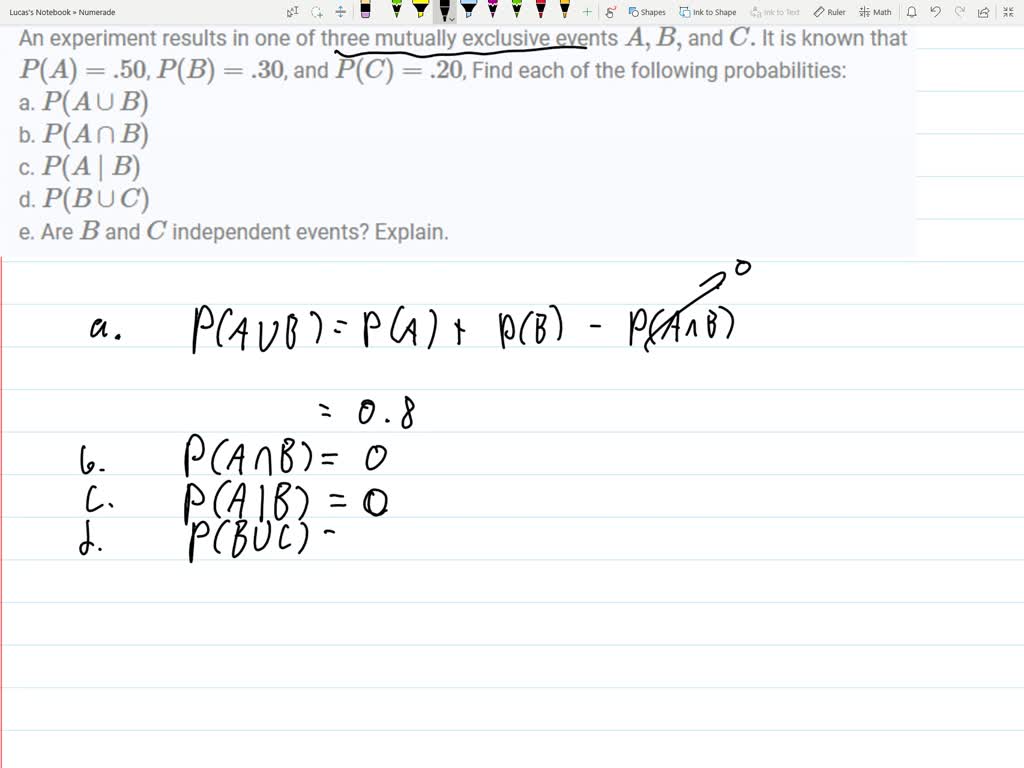 Lucas's Notebook » Numerade
Shapes Ink to Shape Ink to Text Ruler Math
An experiment results in one of three mutually exclusive events A, B, and C. It is known that
P(A) = .50, P(B) = .30, and P(C) = .20, Find each of the following probabilities:
a. P(A ∪ B)
b. P(A ∩ B)
c. P(A | B)
d. P(B ∪ C)
e. Are B and C independent events? Explain.
0
a. P(A∪B) = P(A) + P(B) - P(A∩B)
= 0.8
b. P(A∩B) = 0
c. P(A|B) = 0
d. P(B∪C) -